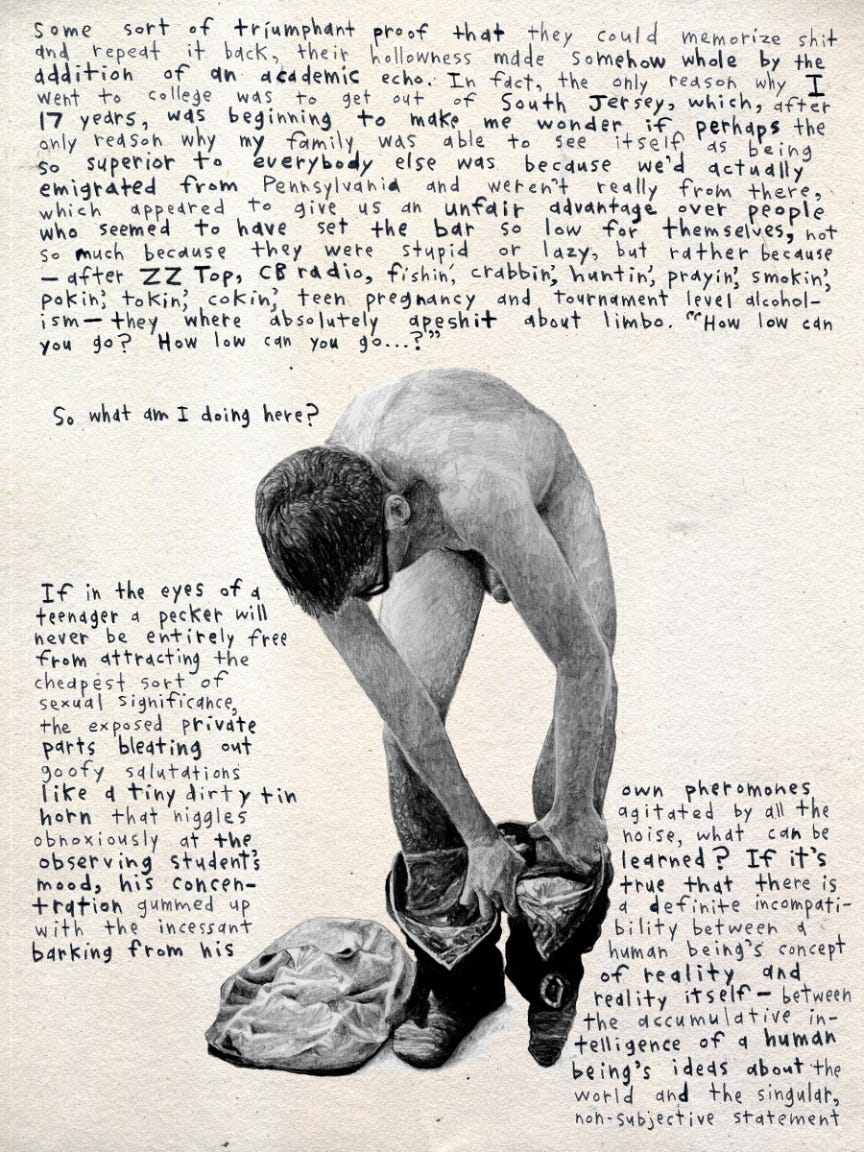 Some sort of triumphant proof that they could memorize shit
and repeat it back, their hollowness made somehow whole by the
addition of an academic echo. In fact, the only reason why I
went to college was to get out of South Jersey, which, after
17 years, was beginning to make me wonder if perhaps the
only reason why my family was able to see itself as being
so superior to everybody else was because we'd actually
emigrated from Pennsylvania and weren't really from there,
which appeared to give us an unfair advantage over people
who seemed to have set the bar so low for themselves, not
so much because they were stupid or lazy, but rather because
—after ZZ Top, CB radio, fishin', crabbin', huntin', prayin', smokin',
pokin', tokin', cokin', teen pregnancy and tournament level alcohol-
ism—they where absolutely apeshit about limbo. "How low can
you go? How low can you go...?"
So what am I doing here?
If in the eyes of a
teenager a pecker will
never be entirely free
from attracting the
cheapest sort of
sexual significance,
the exposed private
parts bleating out
goofy salutations
like a tiny dirty tin
horn that niggles
obnoxiously at the
observing student's
mood, his concen-
tration gummed up
with the incessant
barking from his
own pheromones
agitated by all the
noise, what can be
learned? If it's
true that there is
a definite incompati-
bility between a
human being's concept
of reality and
reality itself—between
the accumulative in-
telligence of a human
being's ideas about the
world and the singular,
non-subjective statement